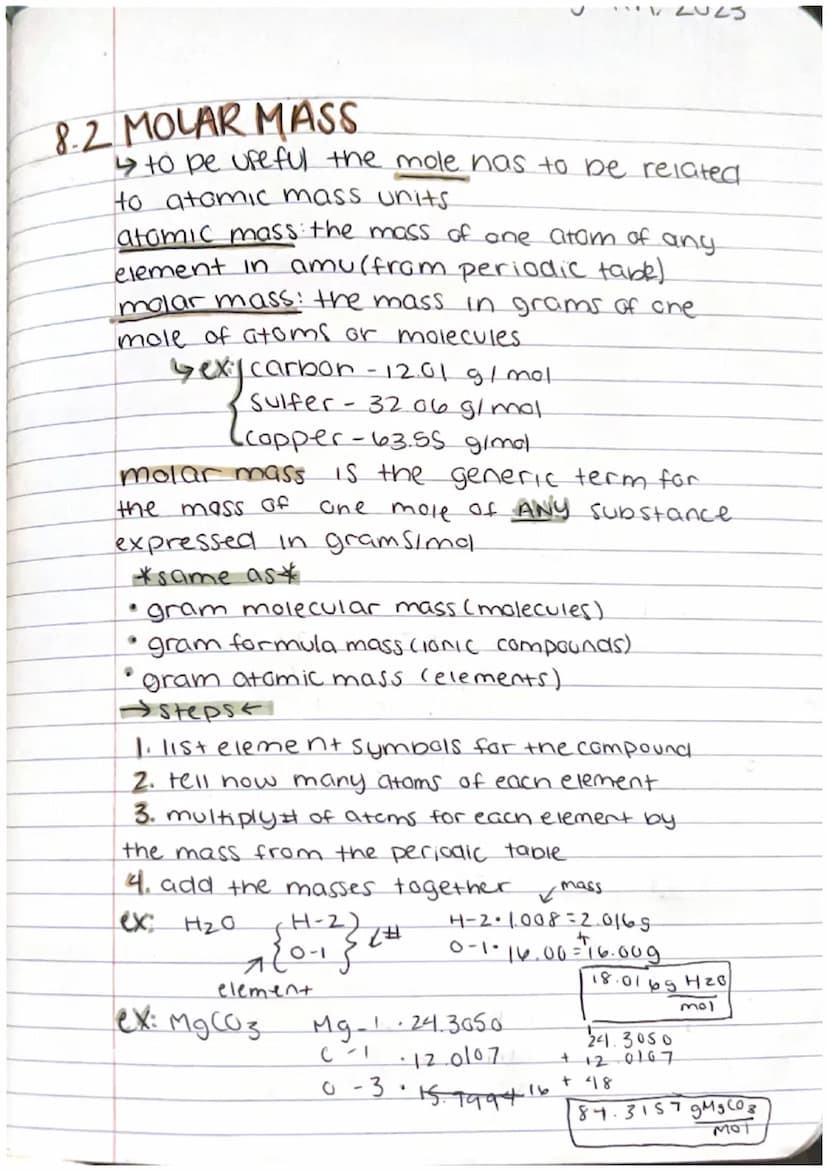 2023
8.2 MOLAR MASS
↳ to be useful the mole has to be related
to atomic mass units
atomic mass: the mass of one atom of any
element in amu (from periodic table)
molar mass: the mass in grams of one
mole of atoms or molecules
↳ ex: { carbon - 12.01 g/mol
sulfer - 32.06 g/mol
copper - 63.55 g/mol
molar mass is the generic term for
the mass of one mole of ANY substance
expressed in grams/mol
*same as*
• gram molecular mass (molecules)
• gram formula mass (ionic compounds)
• gram atomic mass (elements)
→ steps ←
1. list element symbols for the compound
2. tell how many atoms of each element
3. multiply # of atoms for each element by
the mass from the periodic table
4. add the masses together ↙ mass
ex: H2O { H-2 } ∠# H-2 • 1.008 = 2.016g
O-1 O-1 • 16.00 = 16.00g
+
element
18.016g H2O
mol
ex: MgCO3 Mg-1 • 24.3050
C-1 • 12.0107
O-3 • 15.9994 16
24.3050
+ 12.0107
+ 48
84.3157 gMgCO3
mol